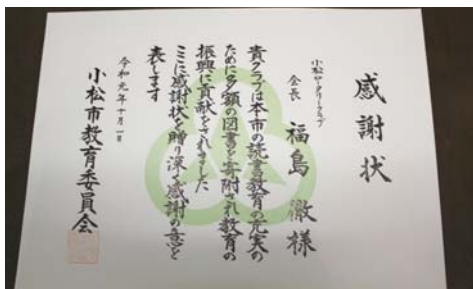 感謝状
小松ロータリークラブ
会長 福島 徹様
貴クラブは本市の読書教育の充実の
ために多額の図書を寄附され教育の
振興に貢献をされました
ここに感謝状を贈り深く感謝の意を
表します
令和元年十月一日
小松市教育委員会